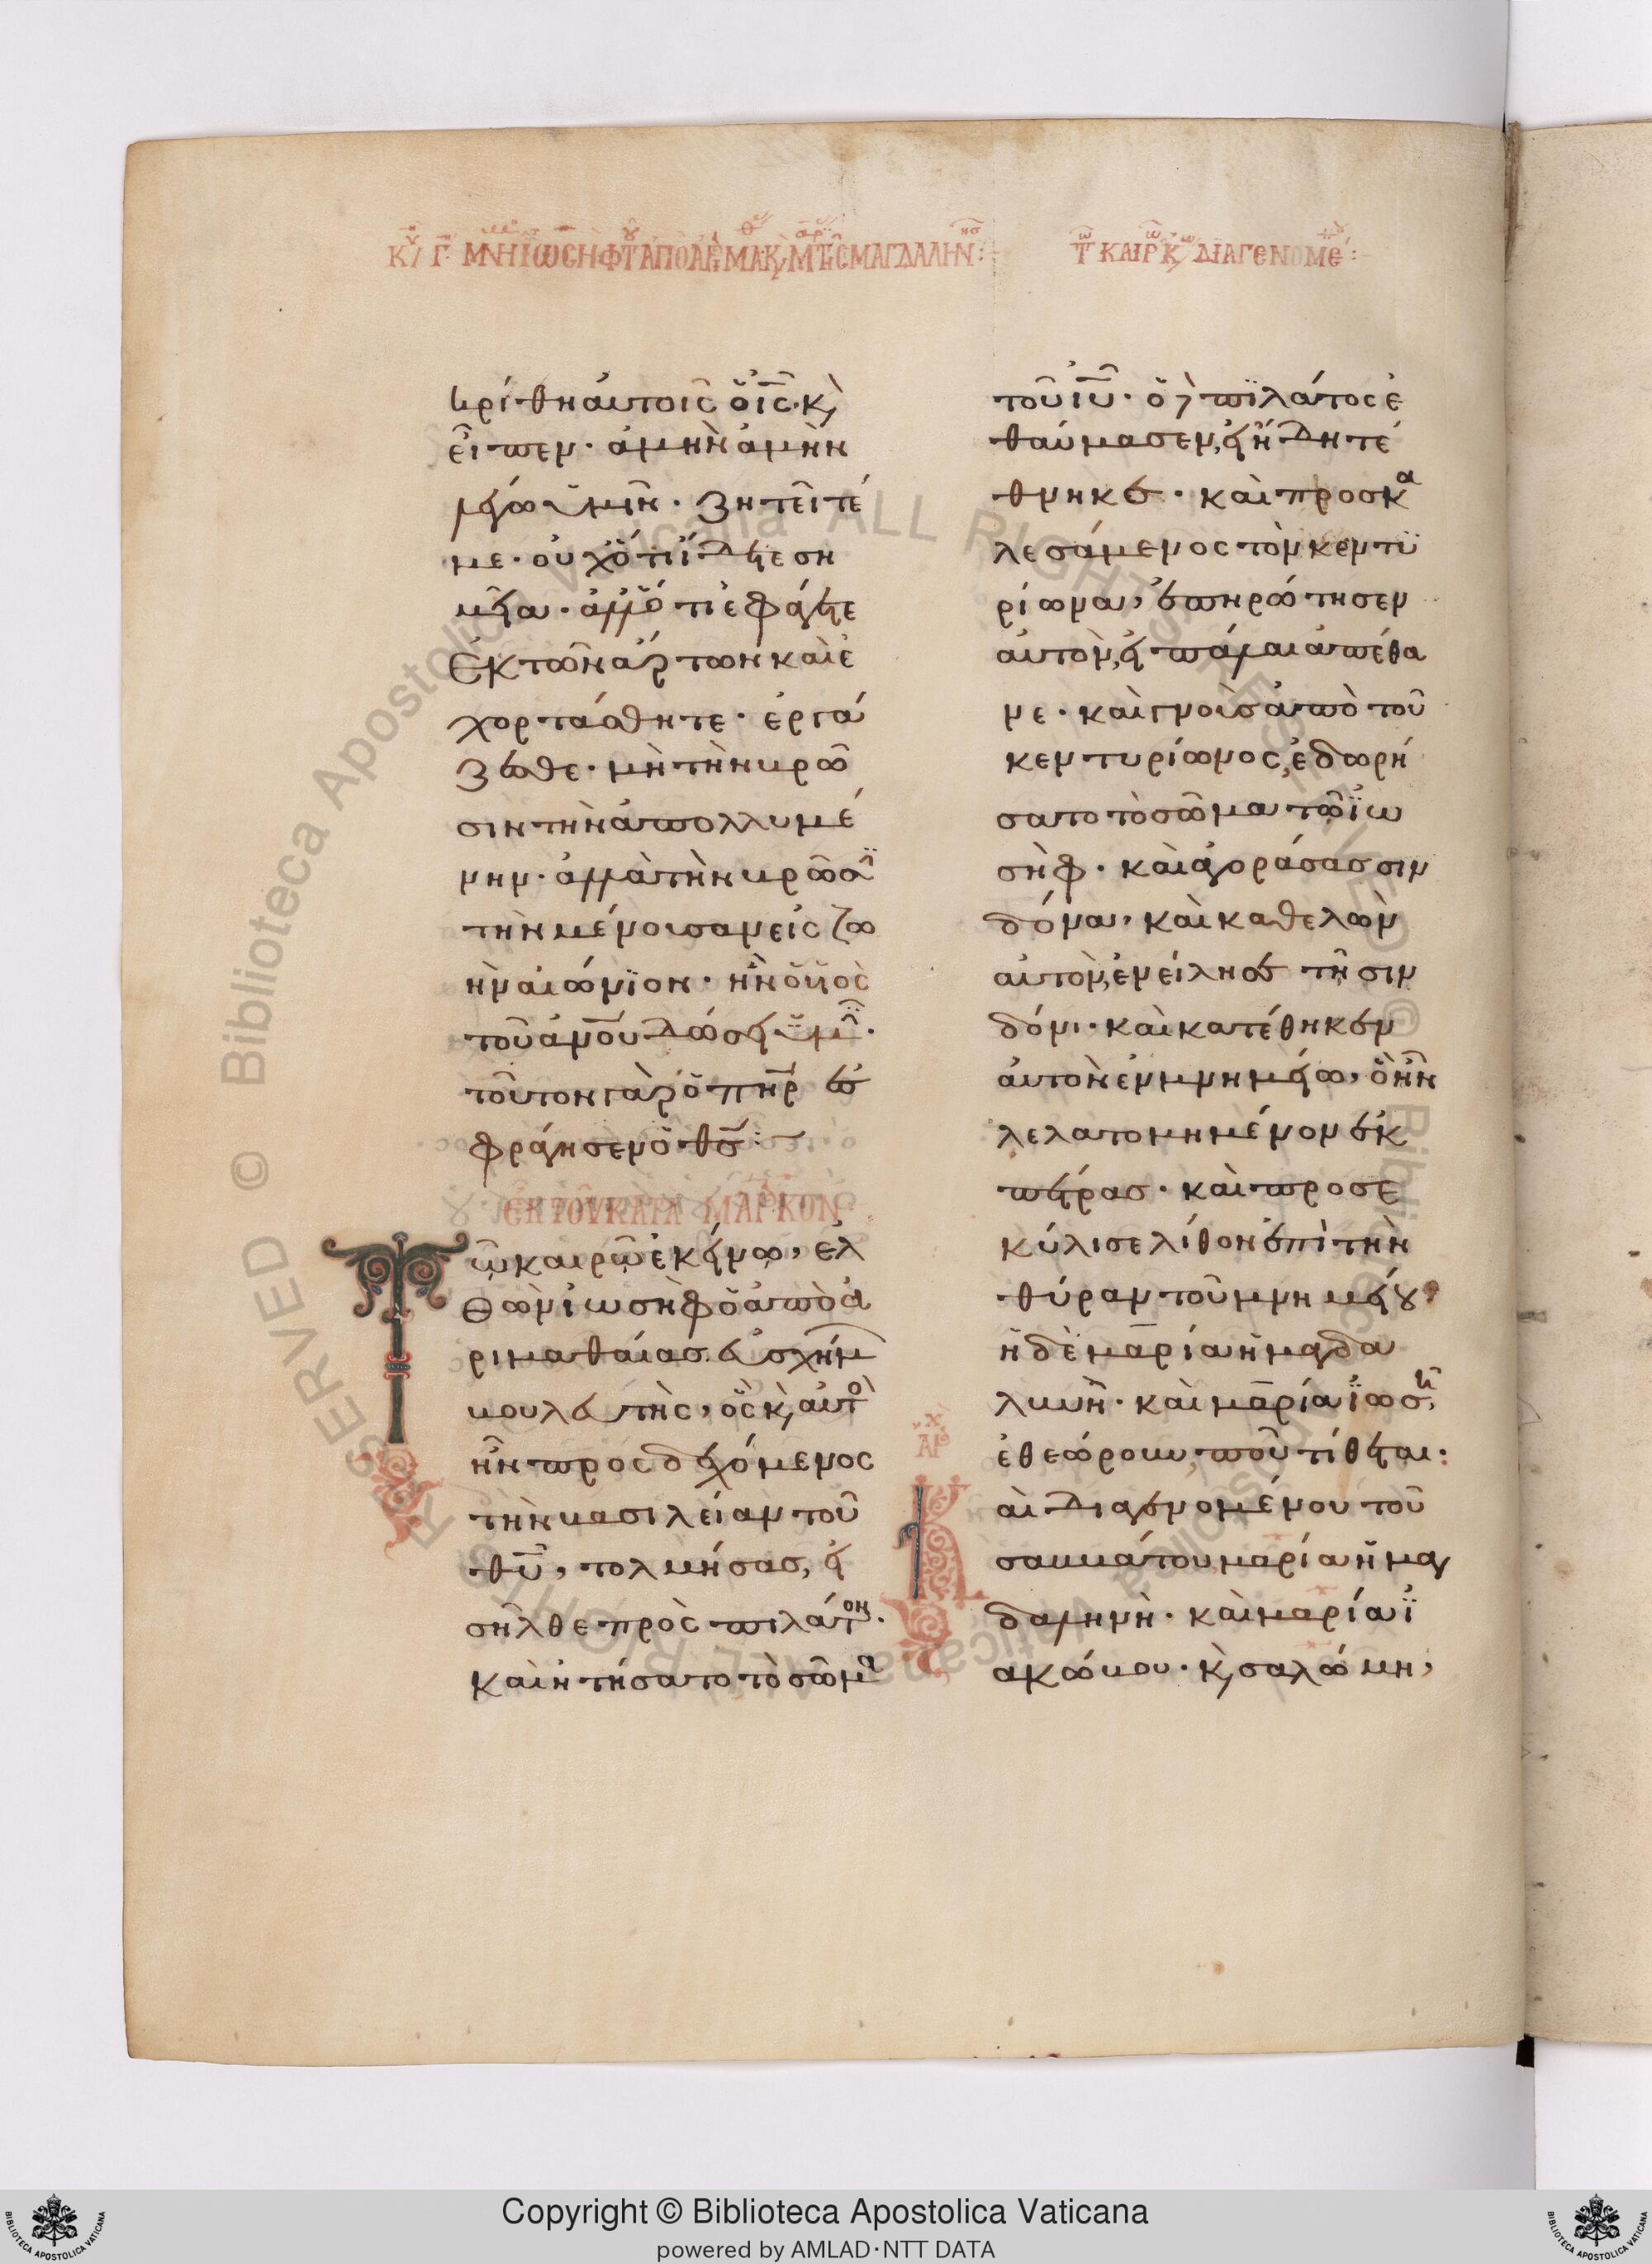 κρίθη αὐτοῖς ὁ ις̅· κ̀
εἶπεν· ἀμὴν ἀμὴν
λέγω ὑμῖν· ζητεῖτέ
με· οὐχ ὅτι εἴδετε ση
μεῖα· ἀλλ' ὅτι ἐφάγετε
ἐκ τῶν ἄρτων καὶ ἐ
χορτάσθητε· ἐργά
ζεσθε· μὴ τὴν βρῶ
σιν τὴν ἀπολλυμέ
νην· ἀλλὰ τὴν βρῶσῖ
τὴν μένουσαν εἰς ζω
ὴν αἰώνιον· ἣν ὁ υἱὸς
τοῦ ανου̅ δώσει ὑμῖ·
τοῦτον γὰρ ὁ πη̅ρ ἐ
σφράγισεν ὁ θς̅:
ΕΚ ΤΟΥ ΚΑΤΑ ΜΑΡΚΟΝ
Τῶ καιρῶ ἐκείνω, ἐλ
θὼν ἰωσὴφ ὁ ἀπὸ ἀ
ριμαθαίας. εὐσχήμ
βουλευτὴς, ὃς κ̀ αὐτὸ
ἦν προσδεχόμενος
τὴν βασιλείαν τοῦ
θυ̅, τολμήσας, εἰ
σῆλθε πρὸς πιλάτον.
καὶ ἠτήσατο τὸ σῶμα
τοῦ ιυ̅· ὁ δὲ πιλάτος ἐ
θαύμασεν, εἰ ἤδη τέ
θνηκε· καὶ προσκα
λεσάμενος τὸν κεντυ
ρίωνα, ἐπηρώτησεν
αὐτὸν, εἰ πάλαι ἀπέθα
νε· καὶ γνοὺς ἀπὸ τοῦ
κεντυρίωνος, ἐδωρή
σατο τὸ σῶμα τῶ ἰω
σὴφ· καὶ ἀγοράσας σιν
δόνα, καὶ καθελὼν
αὐτὸν, ἐνείλησε τῆ σιν
δόνι· καὶ κατέθηκεν
αὐτὸν ἐν μνημείω, ὃ ἦν
λελατομημένον ἐκ
πέτρας· καὶ προσε
κύλισε λίθον ἐπὶ τὴν
θύραν τοῦ μνημείου·
ἡ δὲ μαρία ἡ μαγδα
ληνὴ· καὶ μαρία ἰωσῆ,
ἐθεώρουν, ποῦ τίθεται:
Καὶ διαγενομένου τοῦ
σαββάτου μαρία ἡ μαγ
δαληνὴ· καὶ μαρία ἰ
ακώβου· κ̀ σαλώμη,